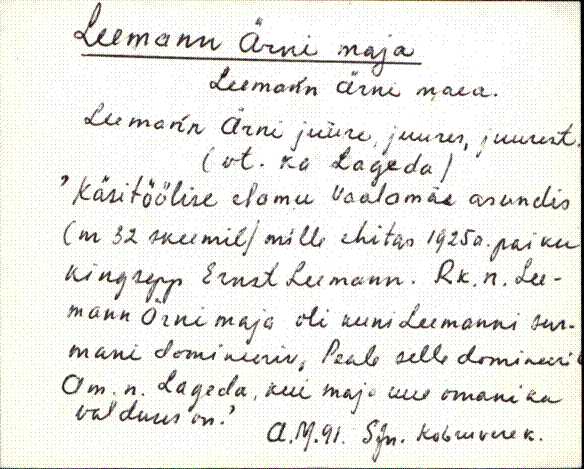 Leemann Ärni maja
Leemańn Ärni maea.
Leemańn Ärni juure, juures, juurest.
(vt. ka Lageda)
'Käsitöölise elamu Vaalamäe asundis
(nr 32 skeemil) mille ehitas 1925a. paiku
kingsepp Ernst Leemann. Rk. n. Lee-
mann Ärni maja oli kuni Leemanni sur-
mani domineeriv, Peale selle domineeri
Am. n. Lageda, kui maja uue omanika
valduses on.'
A.M.91. Sjn.